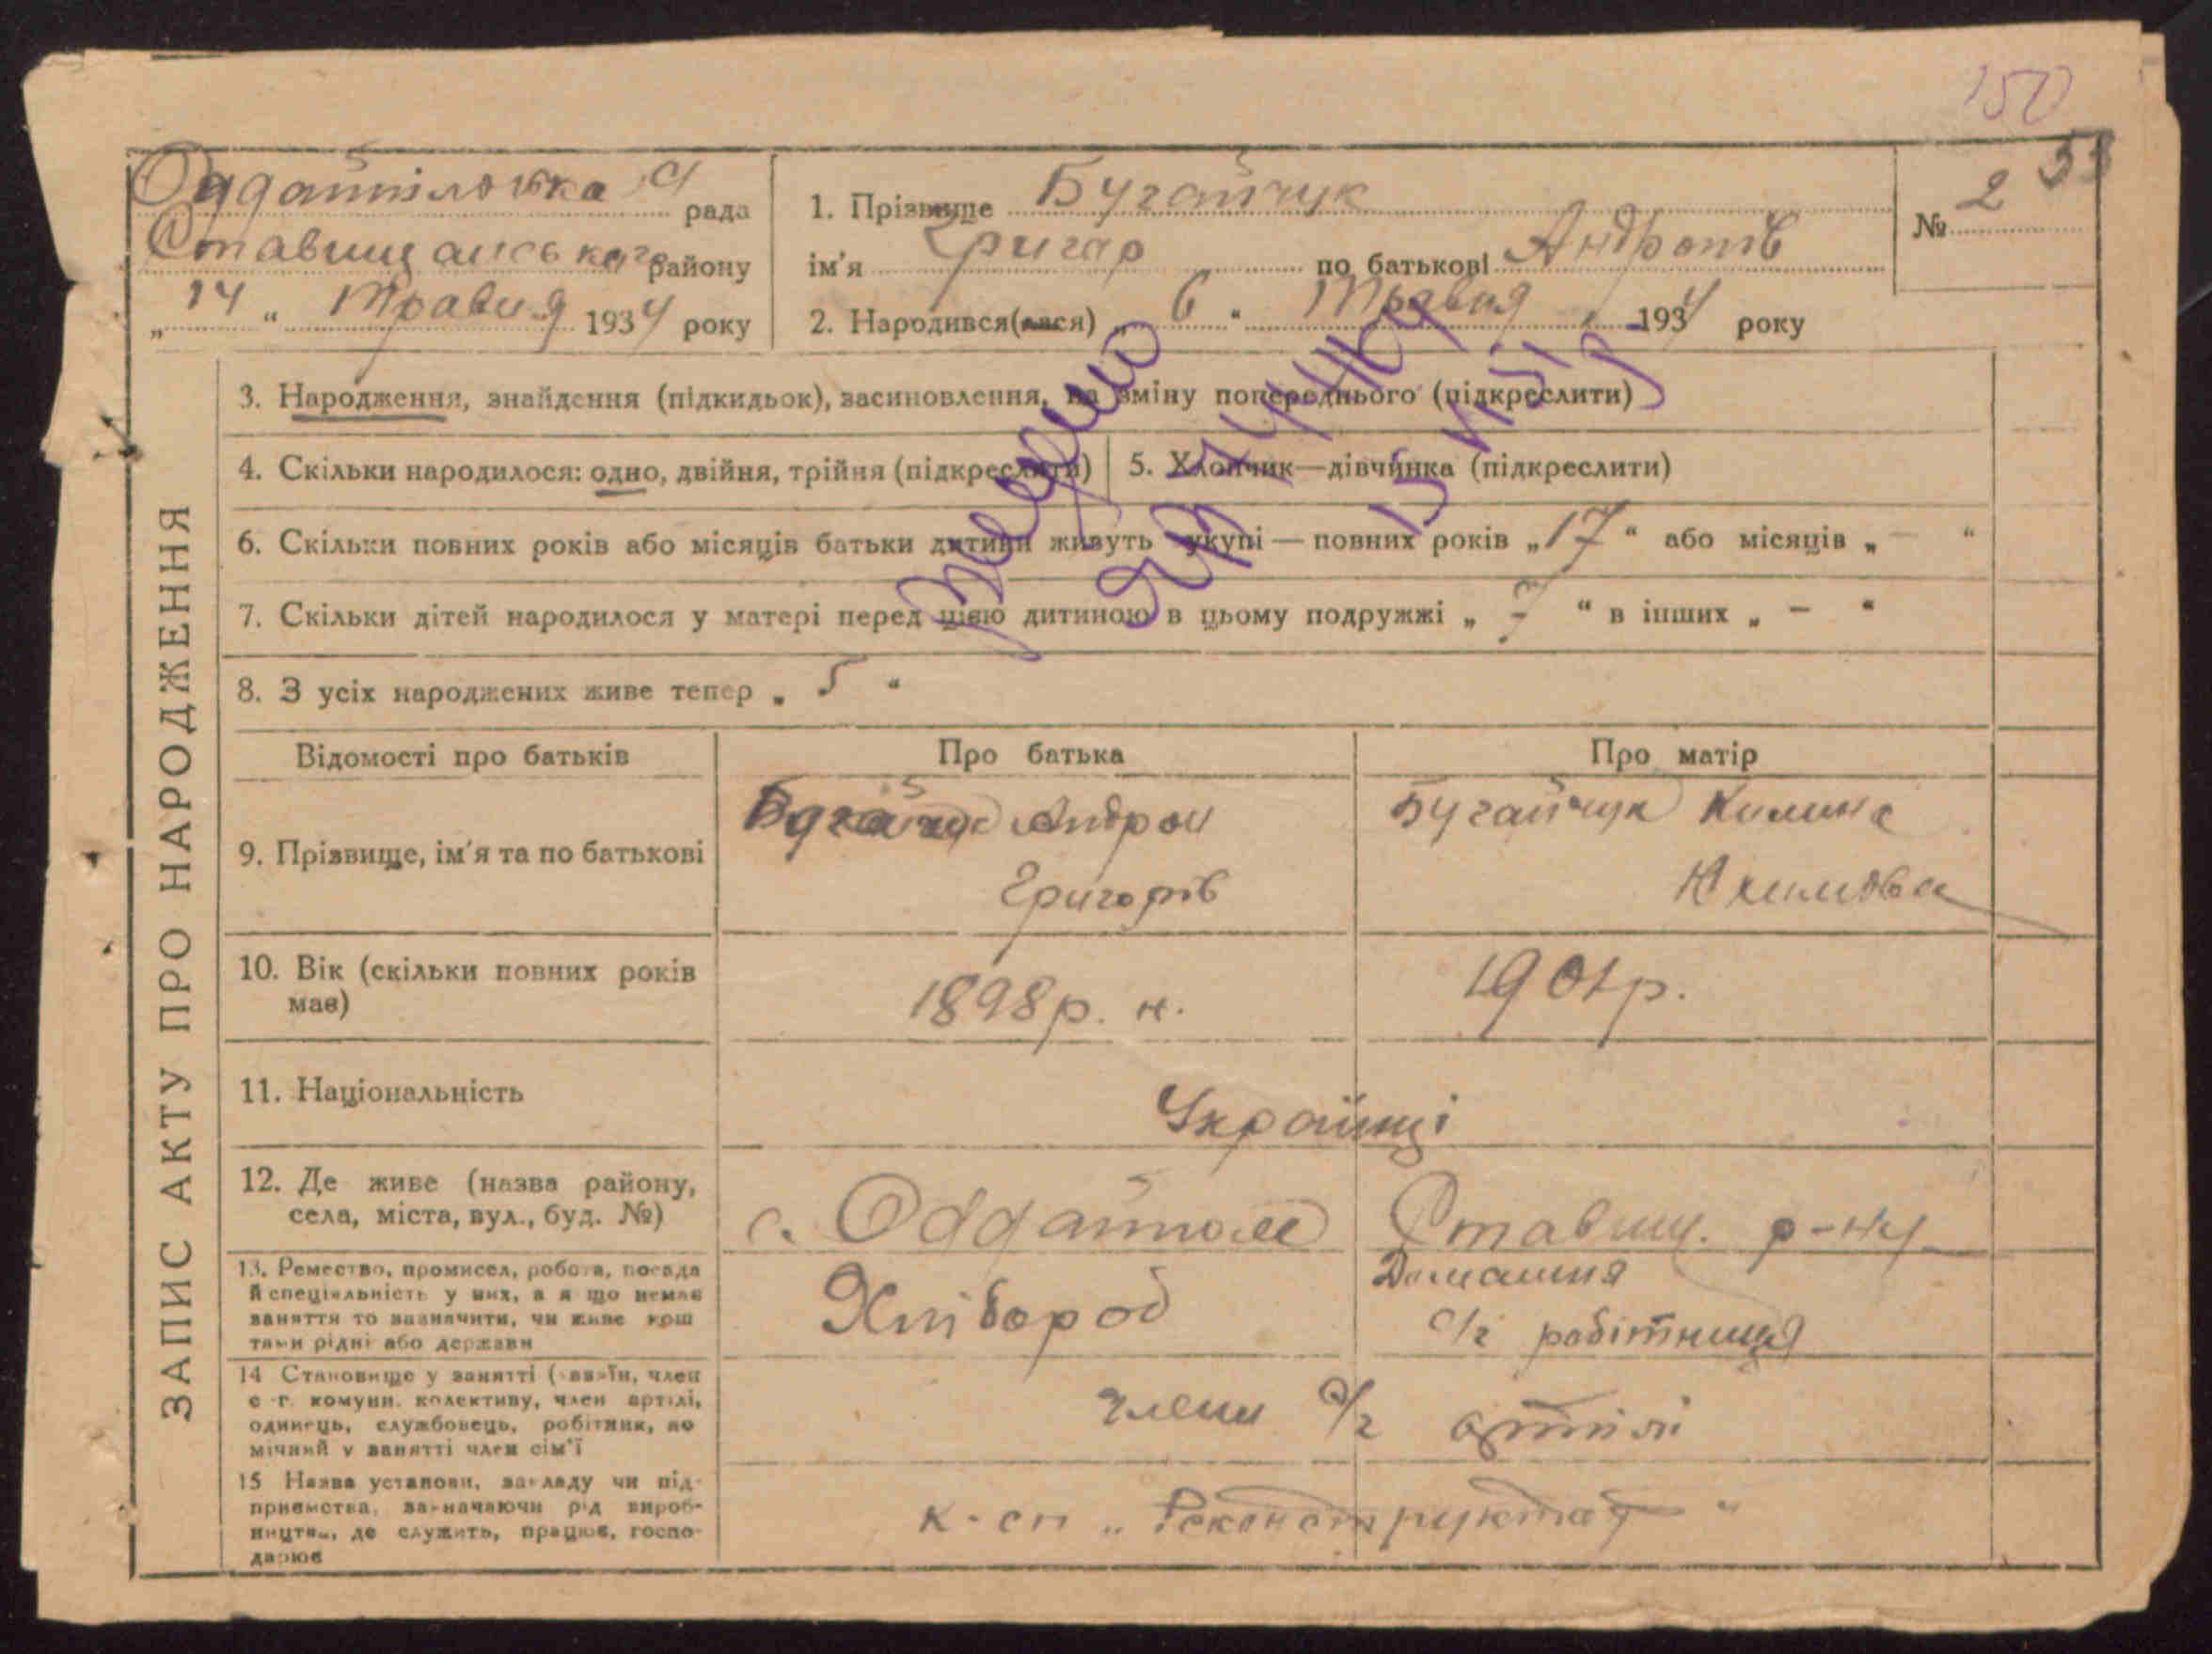 150
Оддайпільська С/ рада
Ставищанського району
„14“ Травня 1934 року
1. Прізвище Бугайчук
ім'я Григор по батькові Андронів
2. Народився(лася) „6“ Травня 1934 року
№ 2 33
ЗАПИС АКТУ ПРО НАРОДЖЕННЯ
3. Народження, знайдення (підкидьок), засиновлення, на зміну попереднього (підкреслити)
4. Скільки народилося: одно, двійня, трійня (підкреслити)
5. Хлопчик—дівчинка (підкреслити)
6. Скільки повних років або місяців батьки дитини живуть укупі — повних років „17“ або місяців „—“
7. Скільки дітей народилося у матері перед цією дитиною в цьому подружжі „7“ в інших „—“
8. З усіх народжених живе тепер „5“
Відомості про батьків
Про батька
Про матір
9. Прізвище, ім'я та по батькові
Бугайчук Андрон
Григорів
Бугайчук Килина
Юхимовна
10. Вік (скільки повних років
має)
1898 р. н.
1901 р.
11. Національність
Українці
12. Де живе (назва району,
села, міста, вул., буд. №)
с. Оддайпіль Ставищ. р-ну
13. Ремество, промисел, робота, посада
й спеціяльність у них, а якщо немає
заняття то зазначити, чи живе кош
тами рідні або держави
Хлібороб
Домашня
с/г робітниця
14 Становище у занятті (хазяїн, член
с.-г. комуни, колективу, член артілі,
одинець, службовець, робітник, по
мічний у занятті член сім'ї
члени с/г артілі
15 Назва установи, закладу чи під-
приємства, зазначаючи рід вироб-
ництва, де служить, працює, госпо-
дарює
к-сп „Реконструктор“